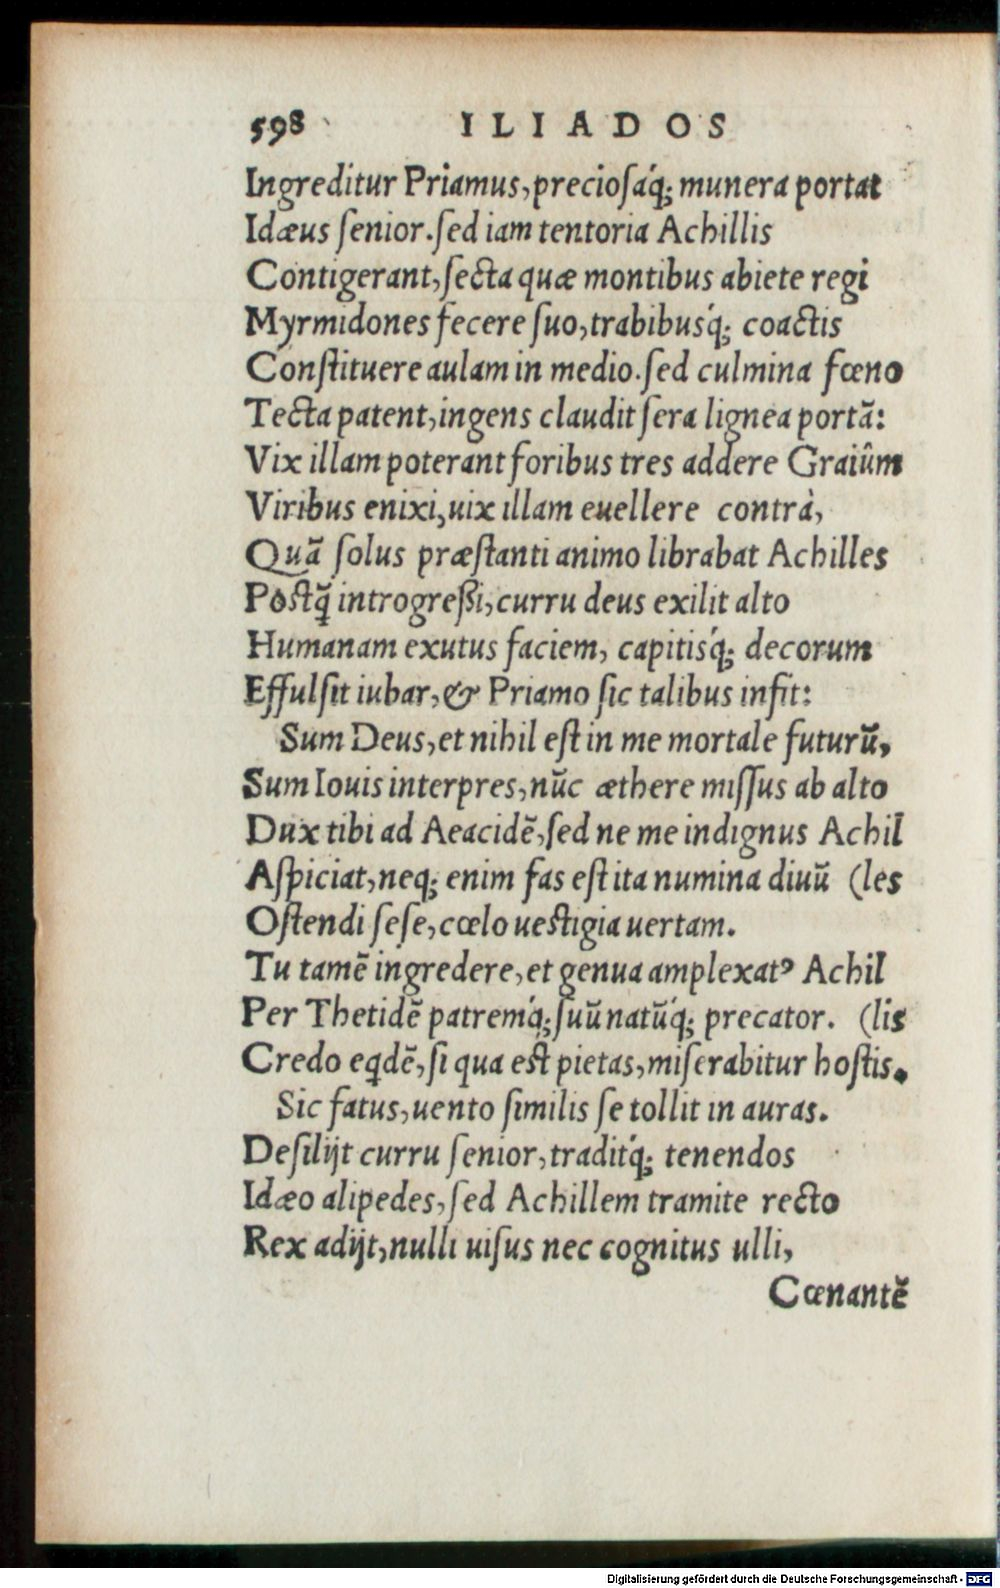 598 ILIADOS
Ingreditur Priamus, preciosáq́; munera portat
Idæus senior. sed iam tentoria Achillis
Contigerant, secta quæ montibus abiete regi
Myrmidones fecere suo, trabibusq́; coactis
Constituere aulam in medio. sed culmina fœno
Tecta patent, ingens claudit sera lignea portã:
Vix illam poterant foribus tres addere Graiûm
Viribus enixi, uix illam euellere contrà,
Quã solus præstanti animo librabat Achilles
Postq̃ introgreßi, curru deus exilit alto
Humanam exutus faciem, capitisq́; decorum
Effulsit iubar, & Priamo sic talibus infit:
Sum Deus, et nihil est in me mortale futurũ,
Sum Iouis interpres, nũc æthere missus ab alto
Dux tibi ad Aeacidẽ, sed ne me indignus Achil
Aspiciat, neq; enim fas est ita numina diuũ (les
Ostendi sese, cœlo uestigia uertam.
Tu tamẽ ingredere, et genua amplexatꝰ Achil
Per Thetidẽ patremq́; suũ natũq́; precator. (lis
Credo eqdẽ, si qua est pietas, miserabitur hostis.
Sic fatus, uento similis se tollit in auras.
Desilijt curru senior, traditq́; tenendos
Idæo alipedes, sed Achillem tramite recto
Rex adijt, nulli uisus nec cognitus ulli,
Cœnantẽ
Digitalisierung gefördert durch die Deutsche Forschungsgemeinschaft - DFG